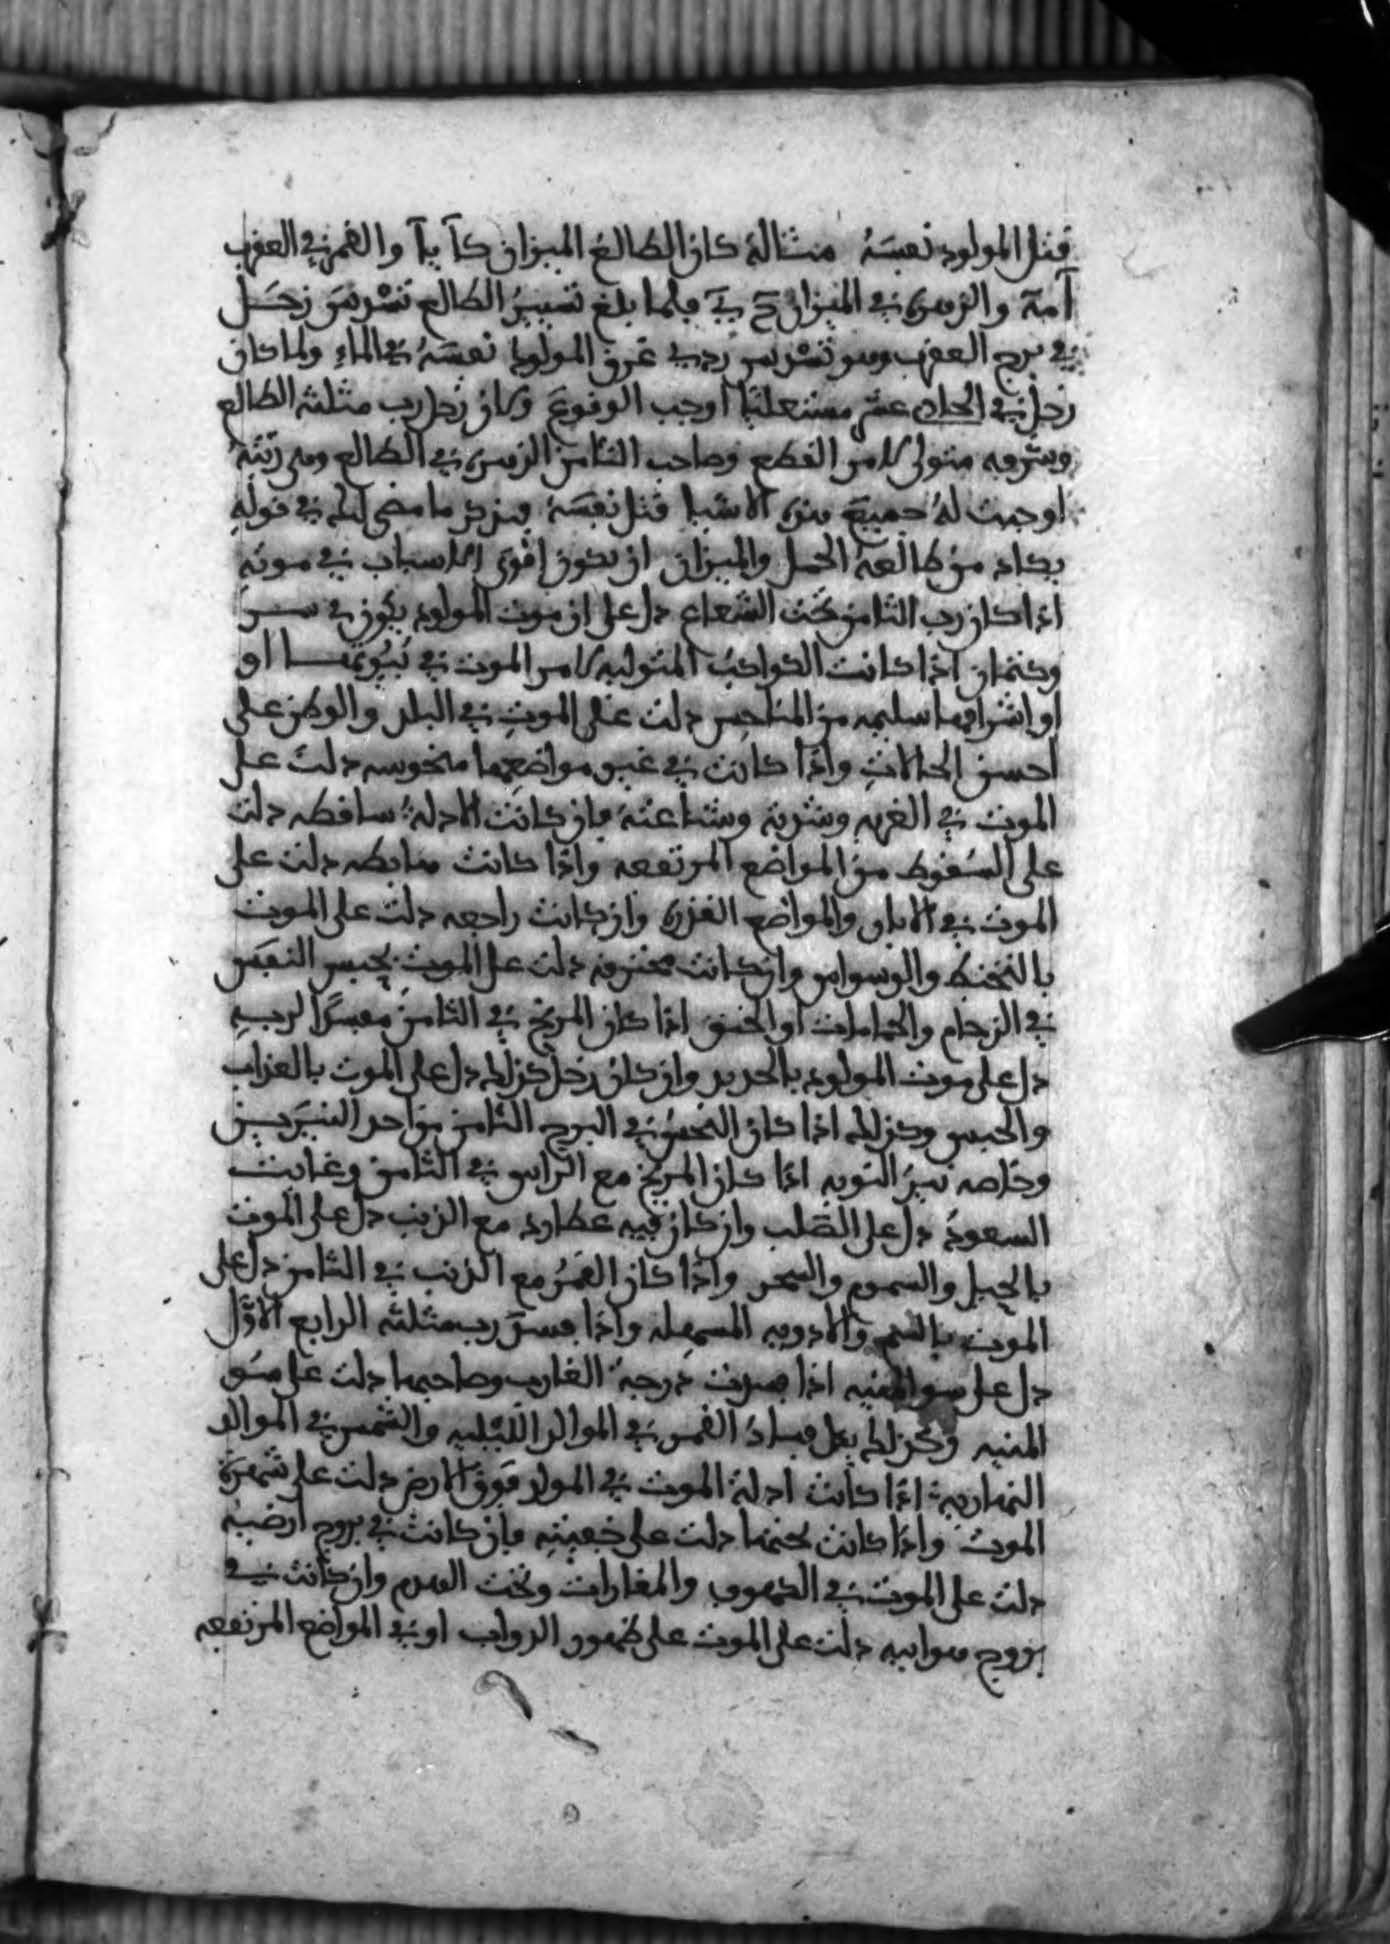 قتل المولود نفسَهُ مثاله كان الطالعُ الميزان كآ يآ والقمر في العقرب
آ مة والزهرة في الميزان ح ية فلما بلغ تسييرُ الطالع تسْديسَ زحَل
في برج العقرب وهو تسْديس ردي غرق المولود نفسَهُ في الماءِ ولما كان
زحل في الحادي عشر مستعليًا أوجب الوقوعَ وكان زحل رب مثلثة الطالع
وشرفه متولي لامر القطع وصاحب الثامن الزهرة في الطالع وهي ربته
اوجبت لهُ جميعَ هذه الاشيا قتل نفسَهُ فيذكر ما مضى لك في قولهِ
يكاد من طالعهُ الحمل والميزان ان يكون اقوى الاسباب في موته
اذا كان رب الثامن تحْتَ الشعاع دل على ان موت المولود يكون في سر
وكتمان اذا كانت الكواكبُ المتوليه لامر الموت في بُيُوتها او
او اشرافها سليمه من المناحِس دلت على الموتِ في البلد والوطن على
احسن الحالاتِ واذا كانت في غير مواضعها منحوسه دلت على
الموت في الغربه وشربه وشناعته فان كانت الادلهُ ساقطه دلت
على السُقوط من المواضع المرتفعه واذا كانت هابطه دلت على
الموت في الابار والمواضع القذره وان كانت راجعه دلت على الموت
بالتخبط والوسواس وان كانت محترقه دلت على الموت بحبس النفَس
في الزحام والحمامات او الخنق اذا كان المريخ في الثامن مفسدًا لربهِ
دل على موت المولود بالحديد وان كان زحل كذلك دل على الموت بالعذاب
والحبس وكذلك اذا كان النحسُ في البرج الثامن من احد النيرَين
وخاصه نيرُ النوبه اذا كان المريخ مع الراس في الثامن وغابت
السعودُ دل على الصَّلب وان كان فيه عطارد مع الذنب دل على الموت
بالحيل والسموم والسحر واذا كان القمرُ مع الذنب في الثامن دل على
الموت بالسم والادويه المسهله واذا فسدَ رب مثلثه الرابع الاوَّل
دل على سو المنيه اذا فسدت درجهُ الغارب وصاحبها دلت على سو
المنيه وكذلك يفعل فسادُ القمر في المواليد الليْليه والشمس في المواليد
النهاريه اذا كانت ادلة الموت في المولد فوق الارض دلت على شهرة
الموتُ واذا كانت تحتها دلت على خفيتهِ فان كانت في بروج ارضيه
دلت على الموت في الكهوف والمغارات وتحت الهدم وان كانت في
بروج هوايه دلت على الموت على ظهور الدواب او في المواضع المرتفعه